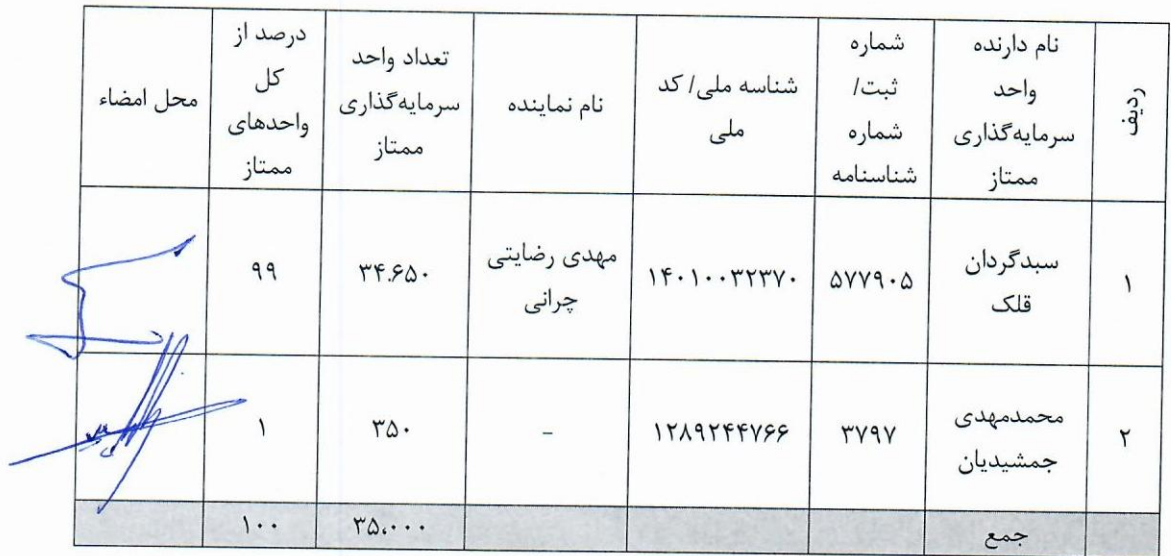 ردیف
نام دارنده
واحد
سرمایه‌گذاری
ممتاز
شماره
ثبت/
شماره
شناسنامه
شناسه ملی/ کد
ملی
نام نماینده
تعداد واحد
سرمایه‌گذاری
ممتاز
درصد از
کل
واحدهای
ممتاز
محل امضاء
۱
سبدگردان
قلک
۵۷۷۹۰۵
۱۴۰۱۰۰۳۲۳۷۰
مهدی رضایتی
چرانی
۳۴.۶۵۰
۹۹
۲
محمدمهدی
جمشیدیان
۳۷۹۷
۱۲۸۹۲۴۴۷۶۶
-
۳۵۰
۱
جمع
۳۵.۰۰۰
۱۰۰